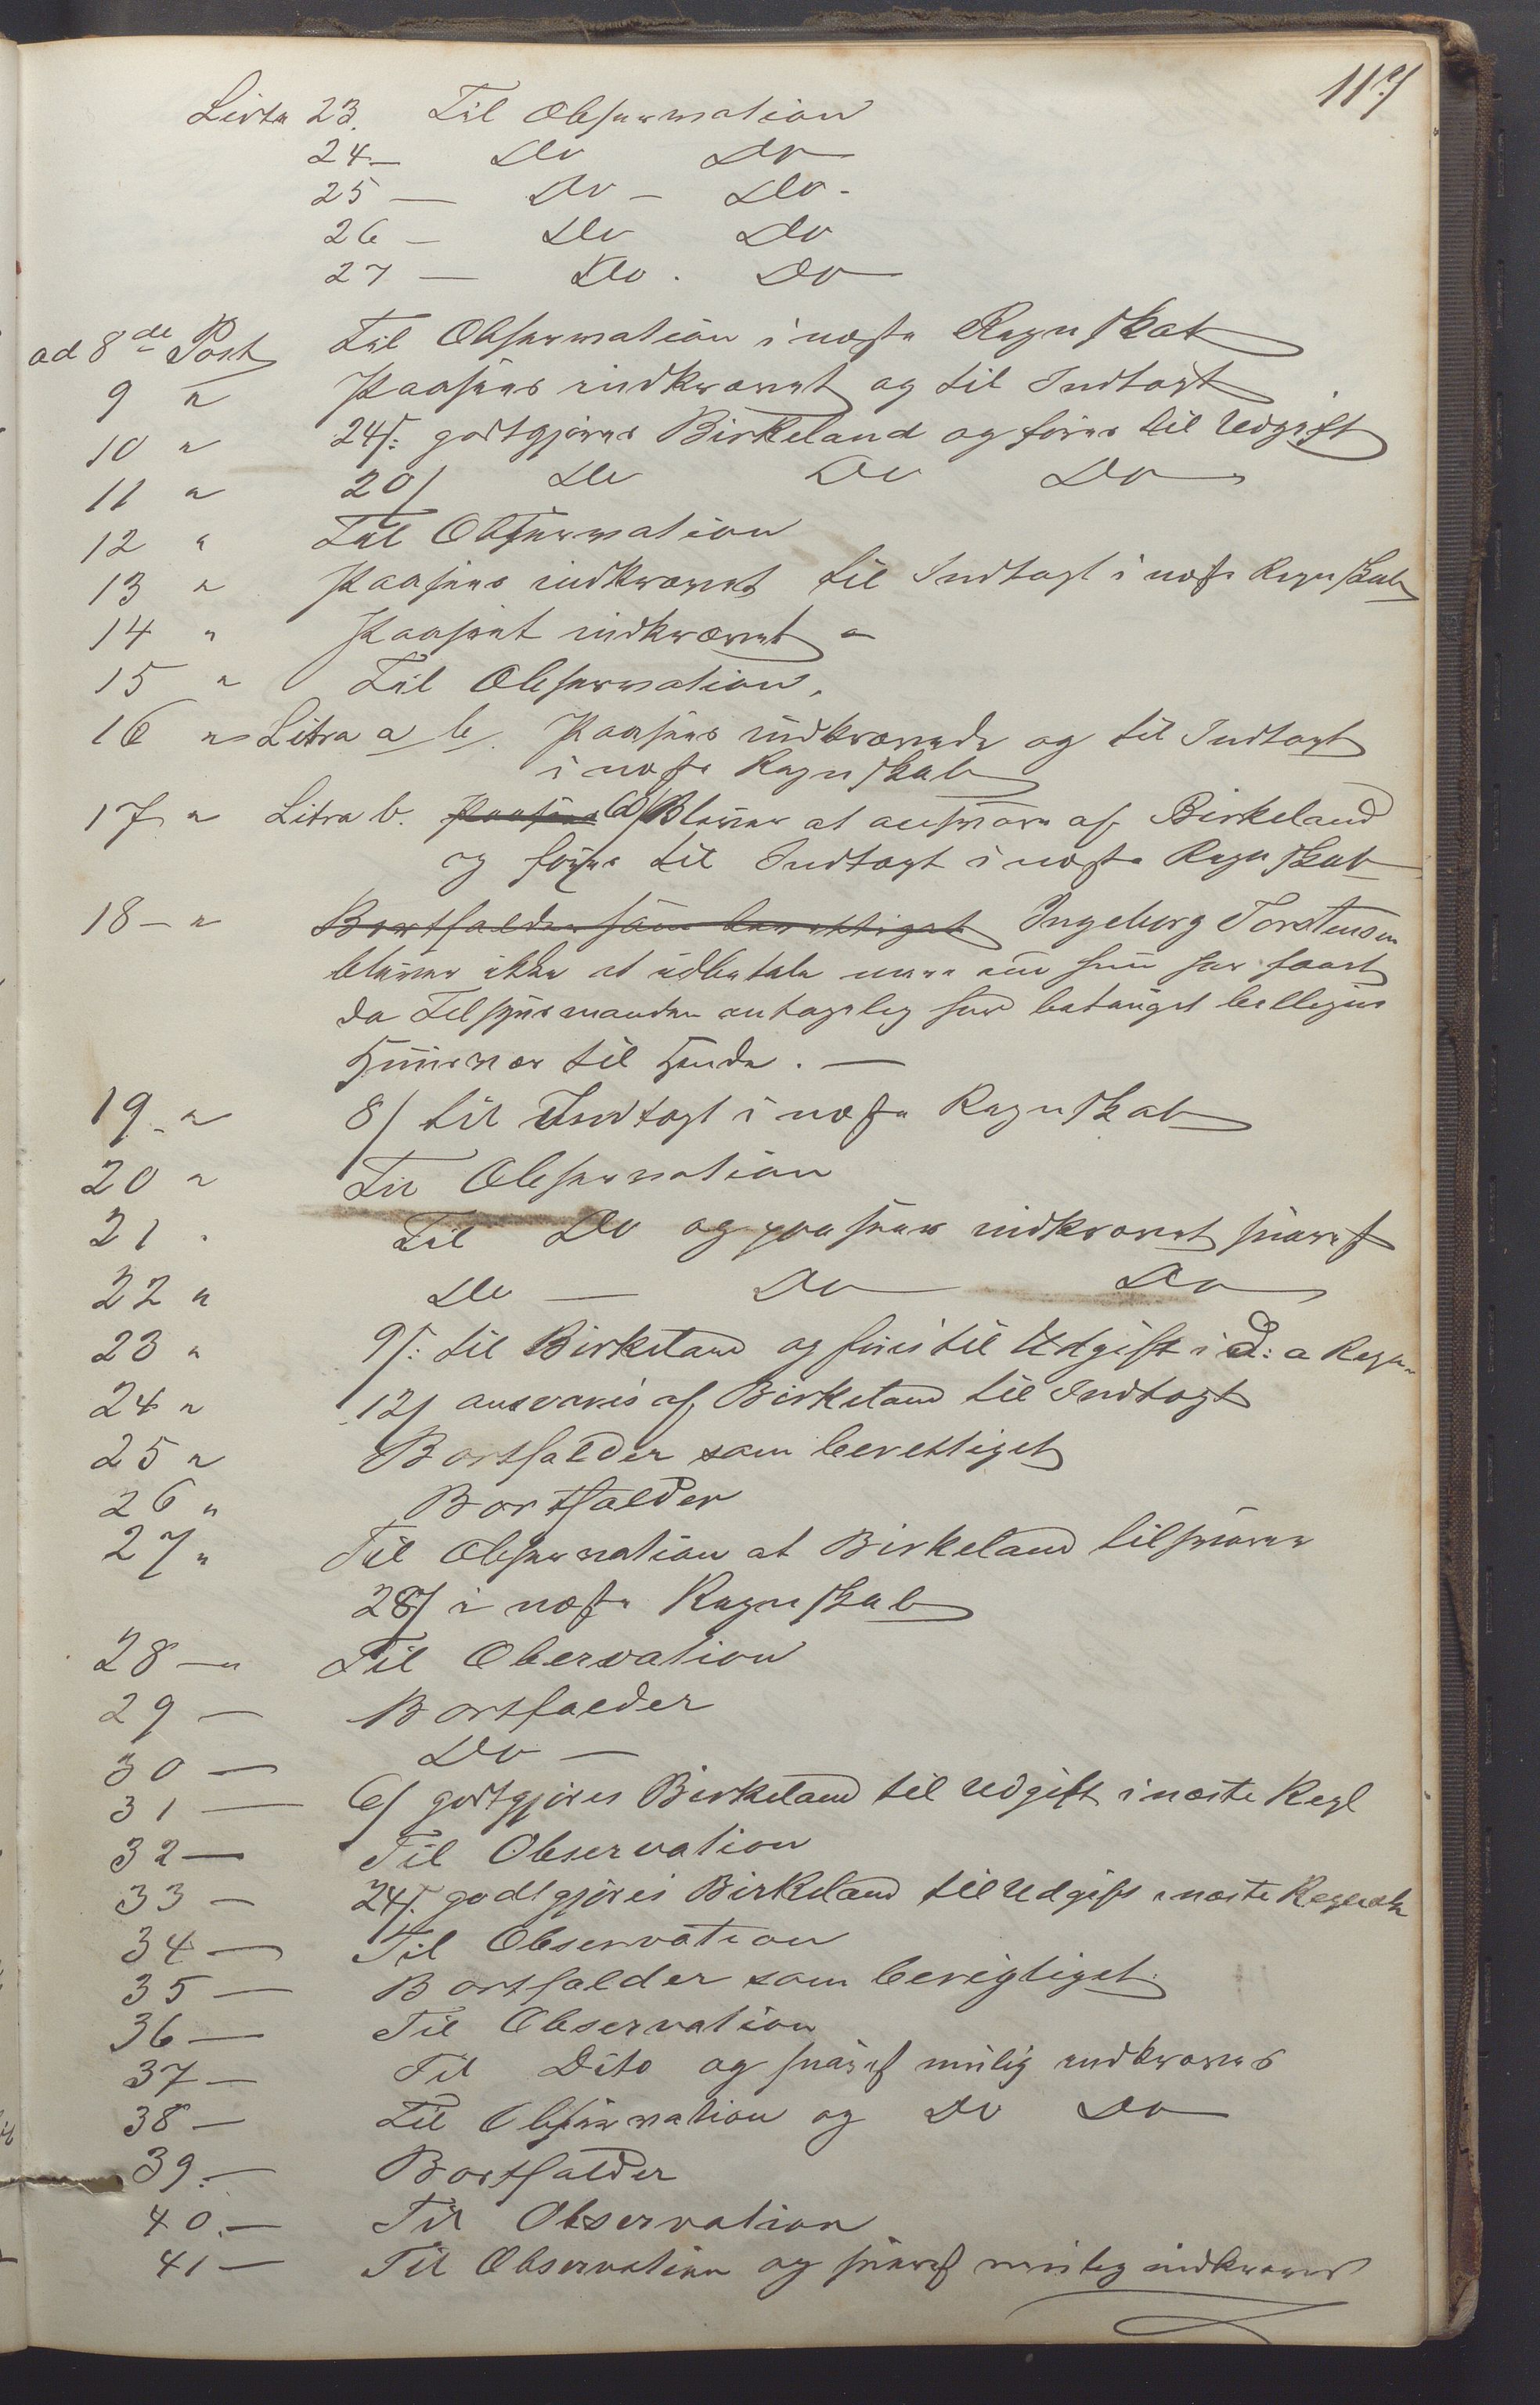 117
Lista 23. Til Observation
24 — Do Do
25 — Do — Do -
26 — Do Do
27 — Do . Do
ad 8de Post Til Observation i næste Regnskab
9 " Paasees indkrævet og til Indtægt
10 " 24/: godtgjøres Birkeland og føres til Udgift
11 " 20/ Do Do Do
12 " Til Observation
13 " Paasees indkrævet til Indtægt i næste Regnskab
14 " Paaseet indkrævet "
15 " Til Observation.
16 " Litra a b. Paasees indkrævede og til Indtægt
i næste Regnskab
17 " Litra b. Paasees 60/ Bliver at ansvare af Birkeland
og føres til Indtægt i næste Regnskab
18 — " Bortfalder som berettiget Ingeborg Torstensen
bliver ikke at udbetale mere end hun har faaet
da Tilsynsmanden antagelig har betinget
til Hende . —
19 - " 8/ til Indtægt i næste Regnskab
20 " Til Observation
21 . Til Do og paasees indkrævet snarest
22 " Do — Do — Do
23 " 9/: til Birkeland og føres til Udgift i d: a Regn
24 " 12/ ansvares af Birkeland til Indtægt
25 " Bortfalder som berettiget
26 " Bortfalder
27 " Til Observation at Birkeland tilsvarer
28/ i næste Regnskab
28 — " Til Obervation
29 — Bortfalder
30 — Do —
31 — 6/ godtgjøres Birkeland til Udgift i næste Regl
32 — Til Observation
33 — 24/. godtgjøres Birkeland til Udgift i næste Regnsk
34 — Til Observation
35 — Bortfalder som berigtiget.
36 — Til Observation
37 — Til Dito og snarest mulig indkræves
38 — Til Observation og Do Do
39. — Bortfalder
40. — Til Observation
41 — Til Observation og snarest mulig indkræves